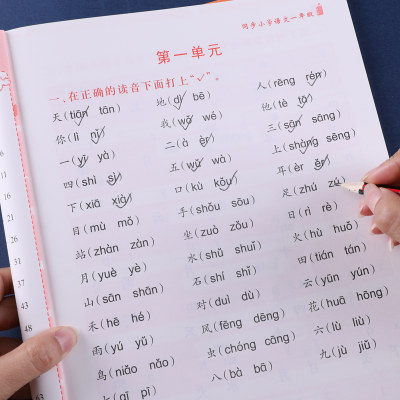 同步小学语文一年级
第一单元
一、在正确的读音下面打上“✓”。
天(tiān tān) 地(dì bē) 人(rēng rén)
你(lǐ nǐ) 我(wǒ wé) 他(tè tā)
一(yī yà) 二(à èr) 三(sān sāng)
四(shì sì) 五(wǔ wà) 上(shàng sēng)
下(xiā xià) 口(kù kǒu) 耳(èr ěr)
目(mù mǒ) 手(shǒu sōu) 足(zhú zú)
站(zhàn zàn) 坐(zuò zǒu) 日(rì rè)
月(yuè yè) 水(shǔ shuǐ) 火(hù huǒ)
山(sān shān) 石(shí shǐ) 田(tián tán)
禾(hē hé) 对(duì dù) 云(yūn yún)
雨(yú yǔ) 风(fēng dēng) 花(huā hōng)
鸟(niǎo nǎo) 虫(chóng cāng) 六(lù liù)
八(bā bā) 九(jù jiǔ)
16
21
26
31
37
43
48
63